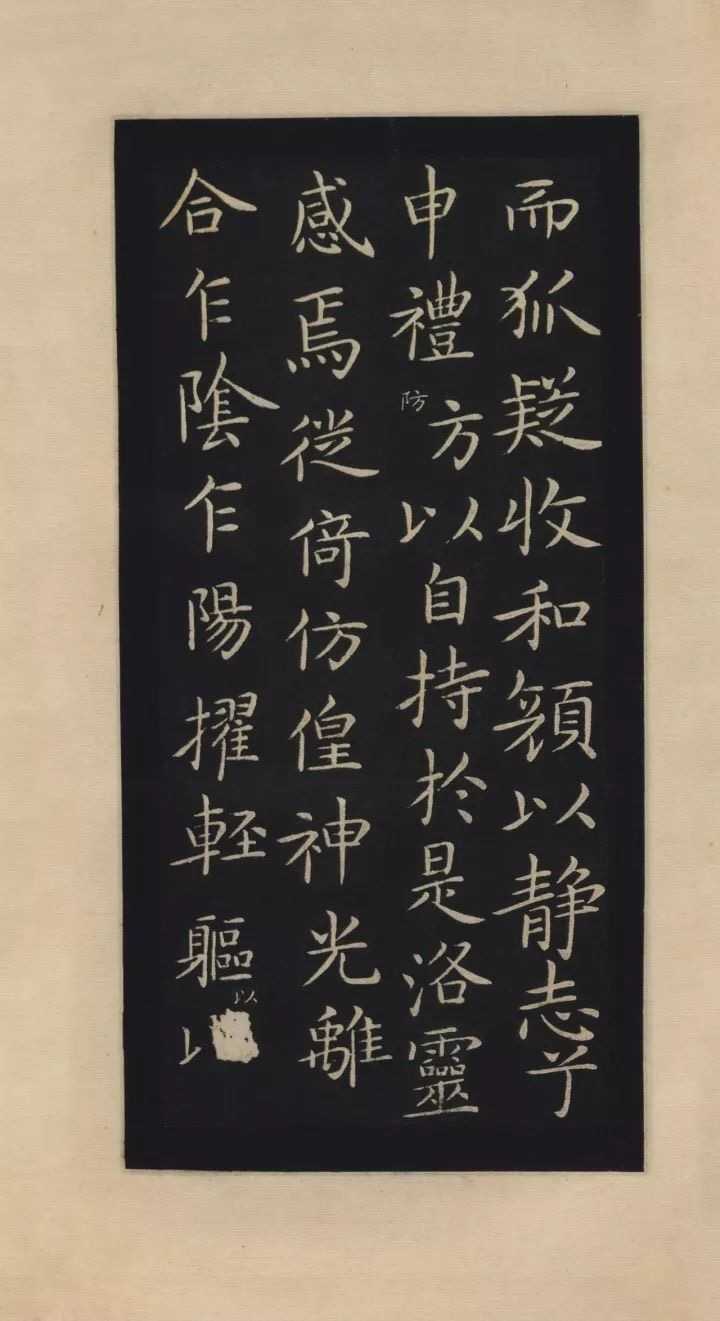 而狐疑收和顏以靜志兮
申禮方以自持於是洛靈
防
感焉徙倚仿偟神光離
合乍陰乍陽擢輕軀
以